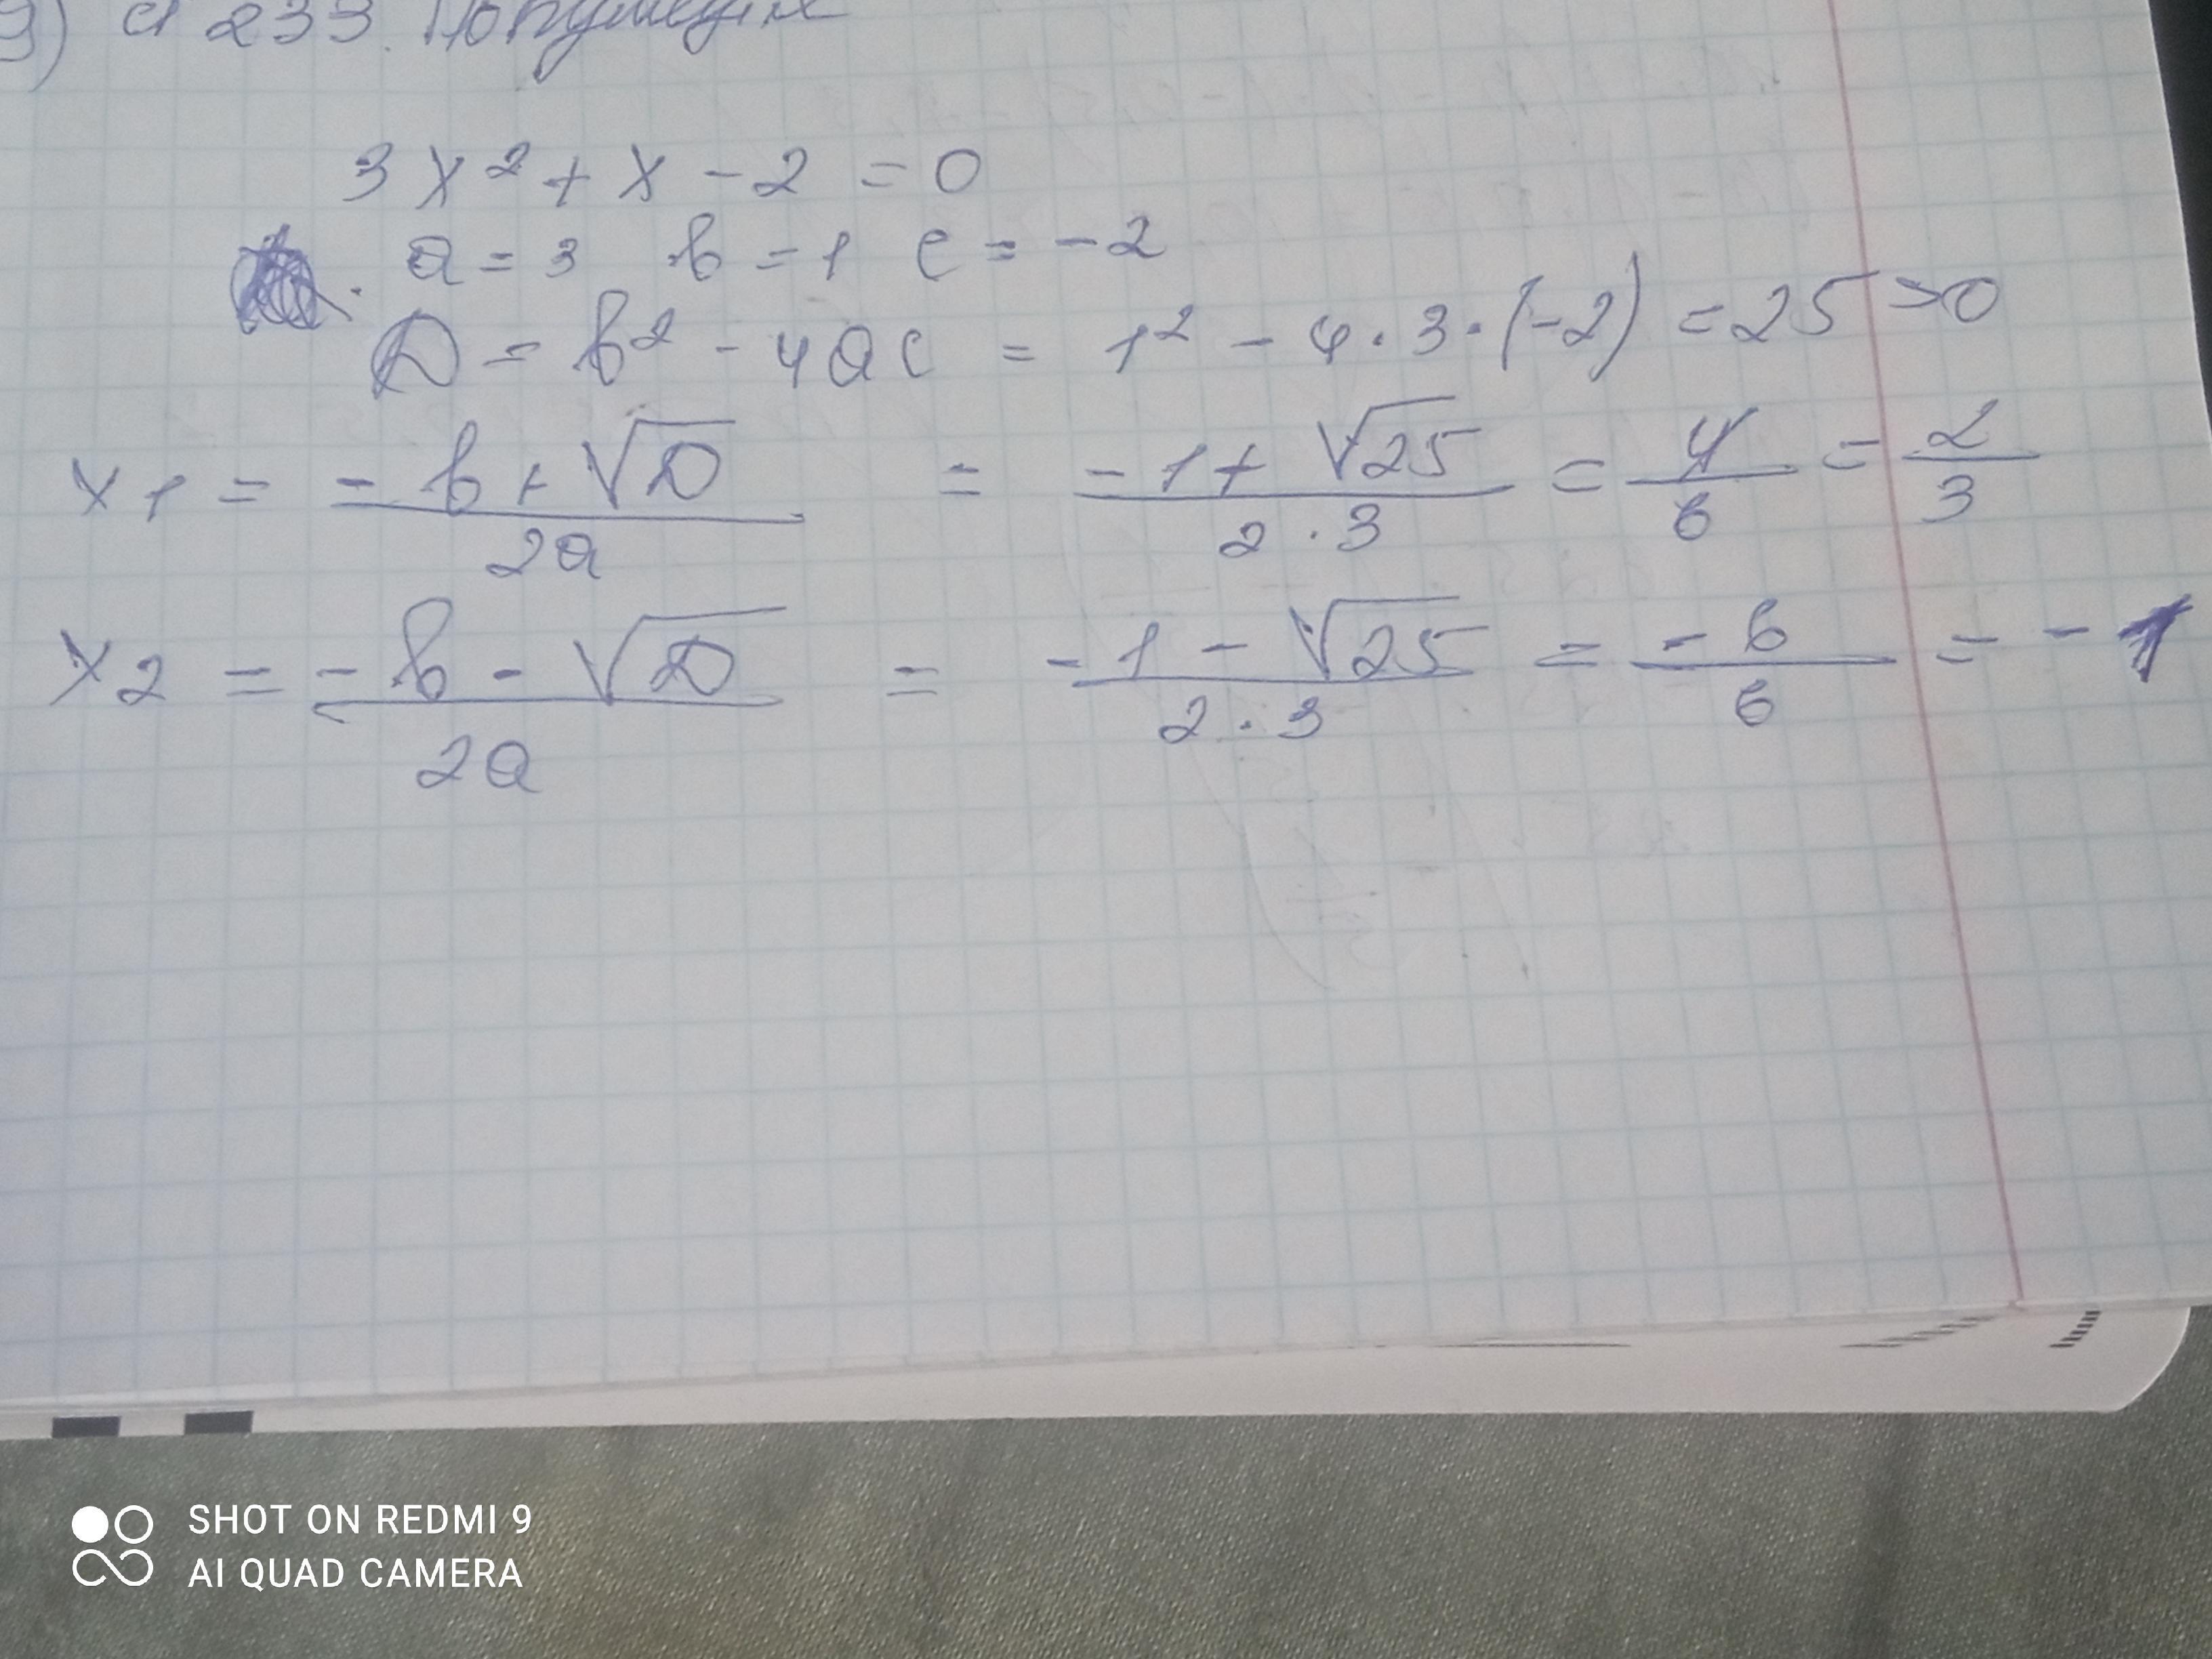 9) a 233.
3x² + x - 2 = 0
a = 3 b = 1 c = -2
D = b² - 4ac = 1² - 4·3·(-2) = 25 > 0
x1 = (-b + √D)/(2a) = (-1 + √25)/(2·3) = 4/6 = 2/3
x2 = (-b - √D)/(2a) = (-1 - √25)/(2·3) = -6/6 = -1
SHOT ON REDMI 9
AI QUAD CAMERA